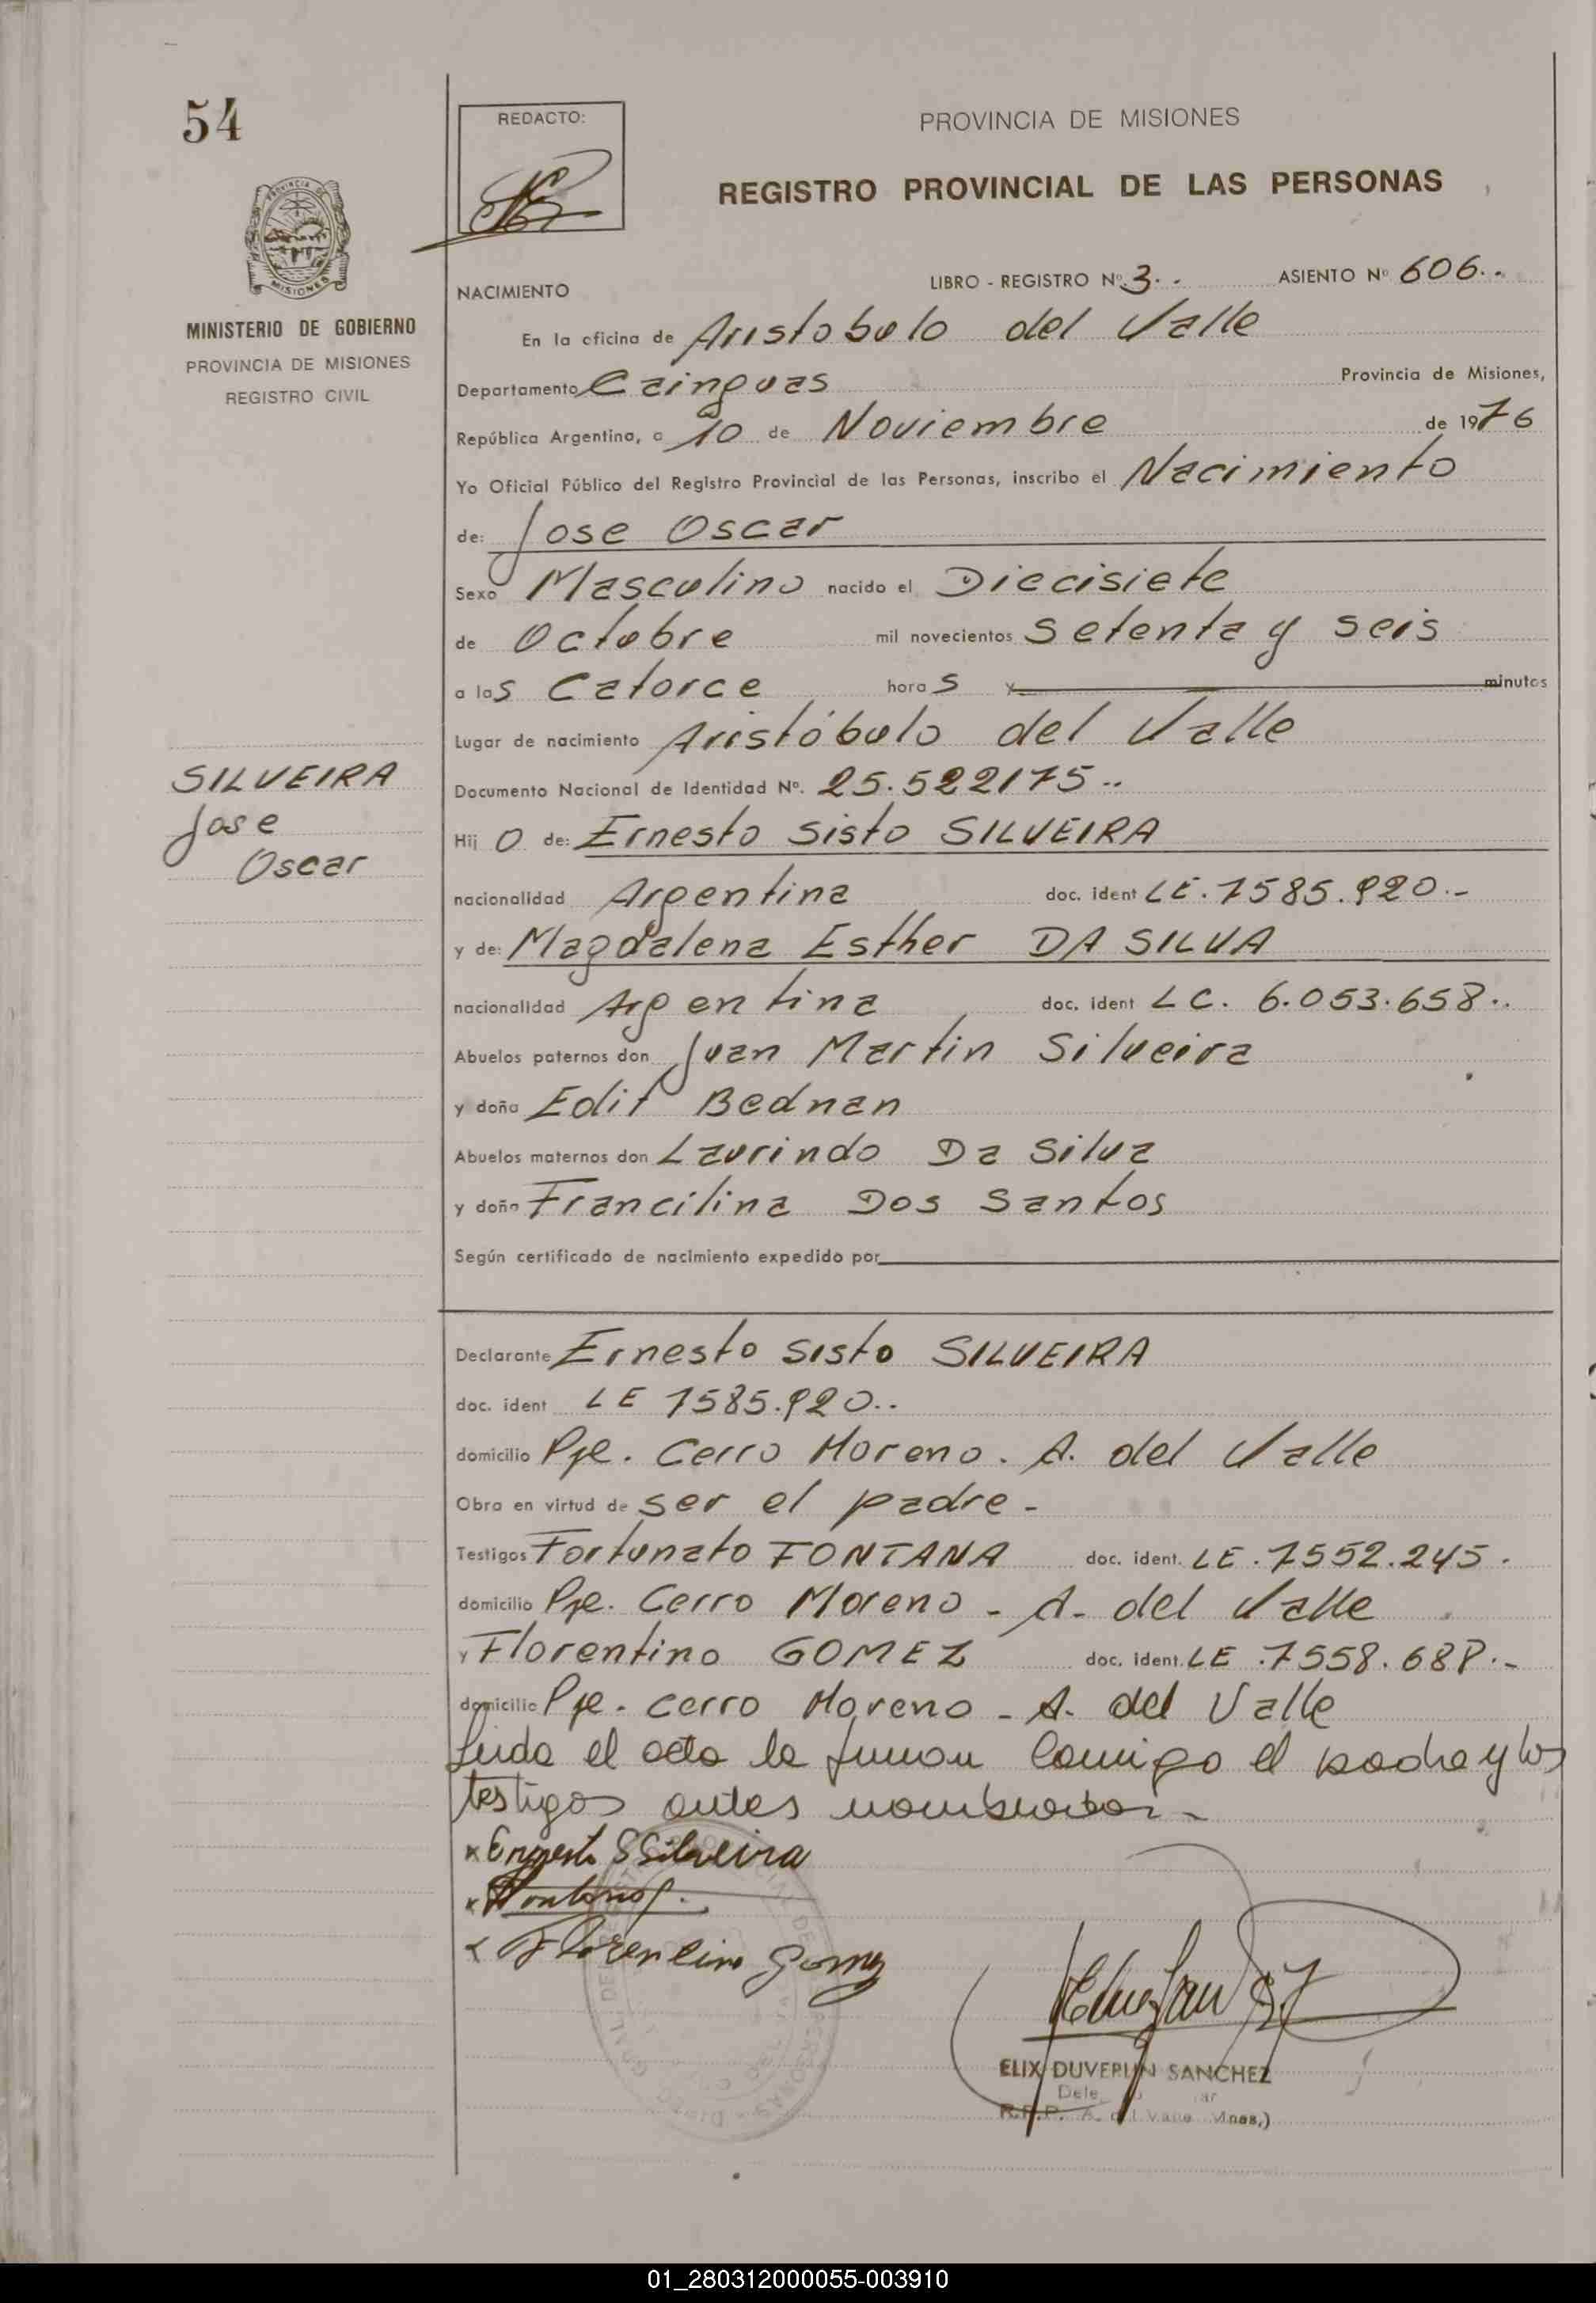 54
REDACTO:
PROVINCIA DE MISIONES
REGISTRO PROVINCIAL DE LAS PERSONAS
PROVINCIA DE
MISIONES
MINISTERIO DE GOBIERNO
PROVINCIA DE MISIONES
REGISTRO CIVIL
NACIMIENTO LIBRO - REGISTRO Nº 3.- ASIENTO Nº 606.-
En la oficina de Aristobulo del Valle
Departamento Cainguas Provincia de Misiones,
República Argentina, a 10 de Noviembre de 1976
Yo Oficial Público del Registro Provincial de las Personas, inscribo el Nacimiento
de: Jose Oscar
Sexo Masculino nacido el Diecisiete
de Octubre mil novecientos Setenta y seis
a las Catorce horas y minutos
Lugar de nacimiento Aristóbulo del Valle
SILVEIRA
Jose
Oscar
Documento Nacional de Identidad Nº. 25.522175..
Hij O de: Ernesto Sisto SILVEIRA
nacionalidad Argentina doc. ident LE. 7585.920.-
y de: Magdalena Esther DA SILVA
nacionalidad Argentina doc. ident LC. 6.053.658..
Abuelos paternos don Juan Martin Silveira
y doña Edit Bednan
Abuelos maternos don Laurindo Da Silva
y doña Francilina Dos Santos
Según certificado de nacimiento expedido por
Declarante Ernesto Sisto SILVEIRA
doc. ident LE 7585.920..
domicilio Pje. Cerro Moreno. A. del Valle
Obra en virtud de ser el padre-
Testigos Fortunato FONTANA doc. ident. LE. 7552.245.
domicilio Pje. Cerro Moreno - A- del Valle
y Florentino GOMEZ doc. ident. LE .7558.689.-
domicilio Pje. cerro Moreno - A. del Valle
Leida el acta la firman conmigo el padre y los
testigos antes nombrados.-
x Ernesto S Silveira
x
x Florentino Gomez
ELIX DUVERLIN SANCHEZ
R.P.P. A. del Valle Mnes,)
01_280312000055-003910